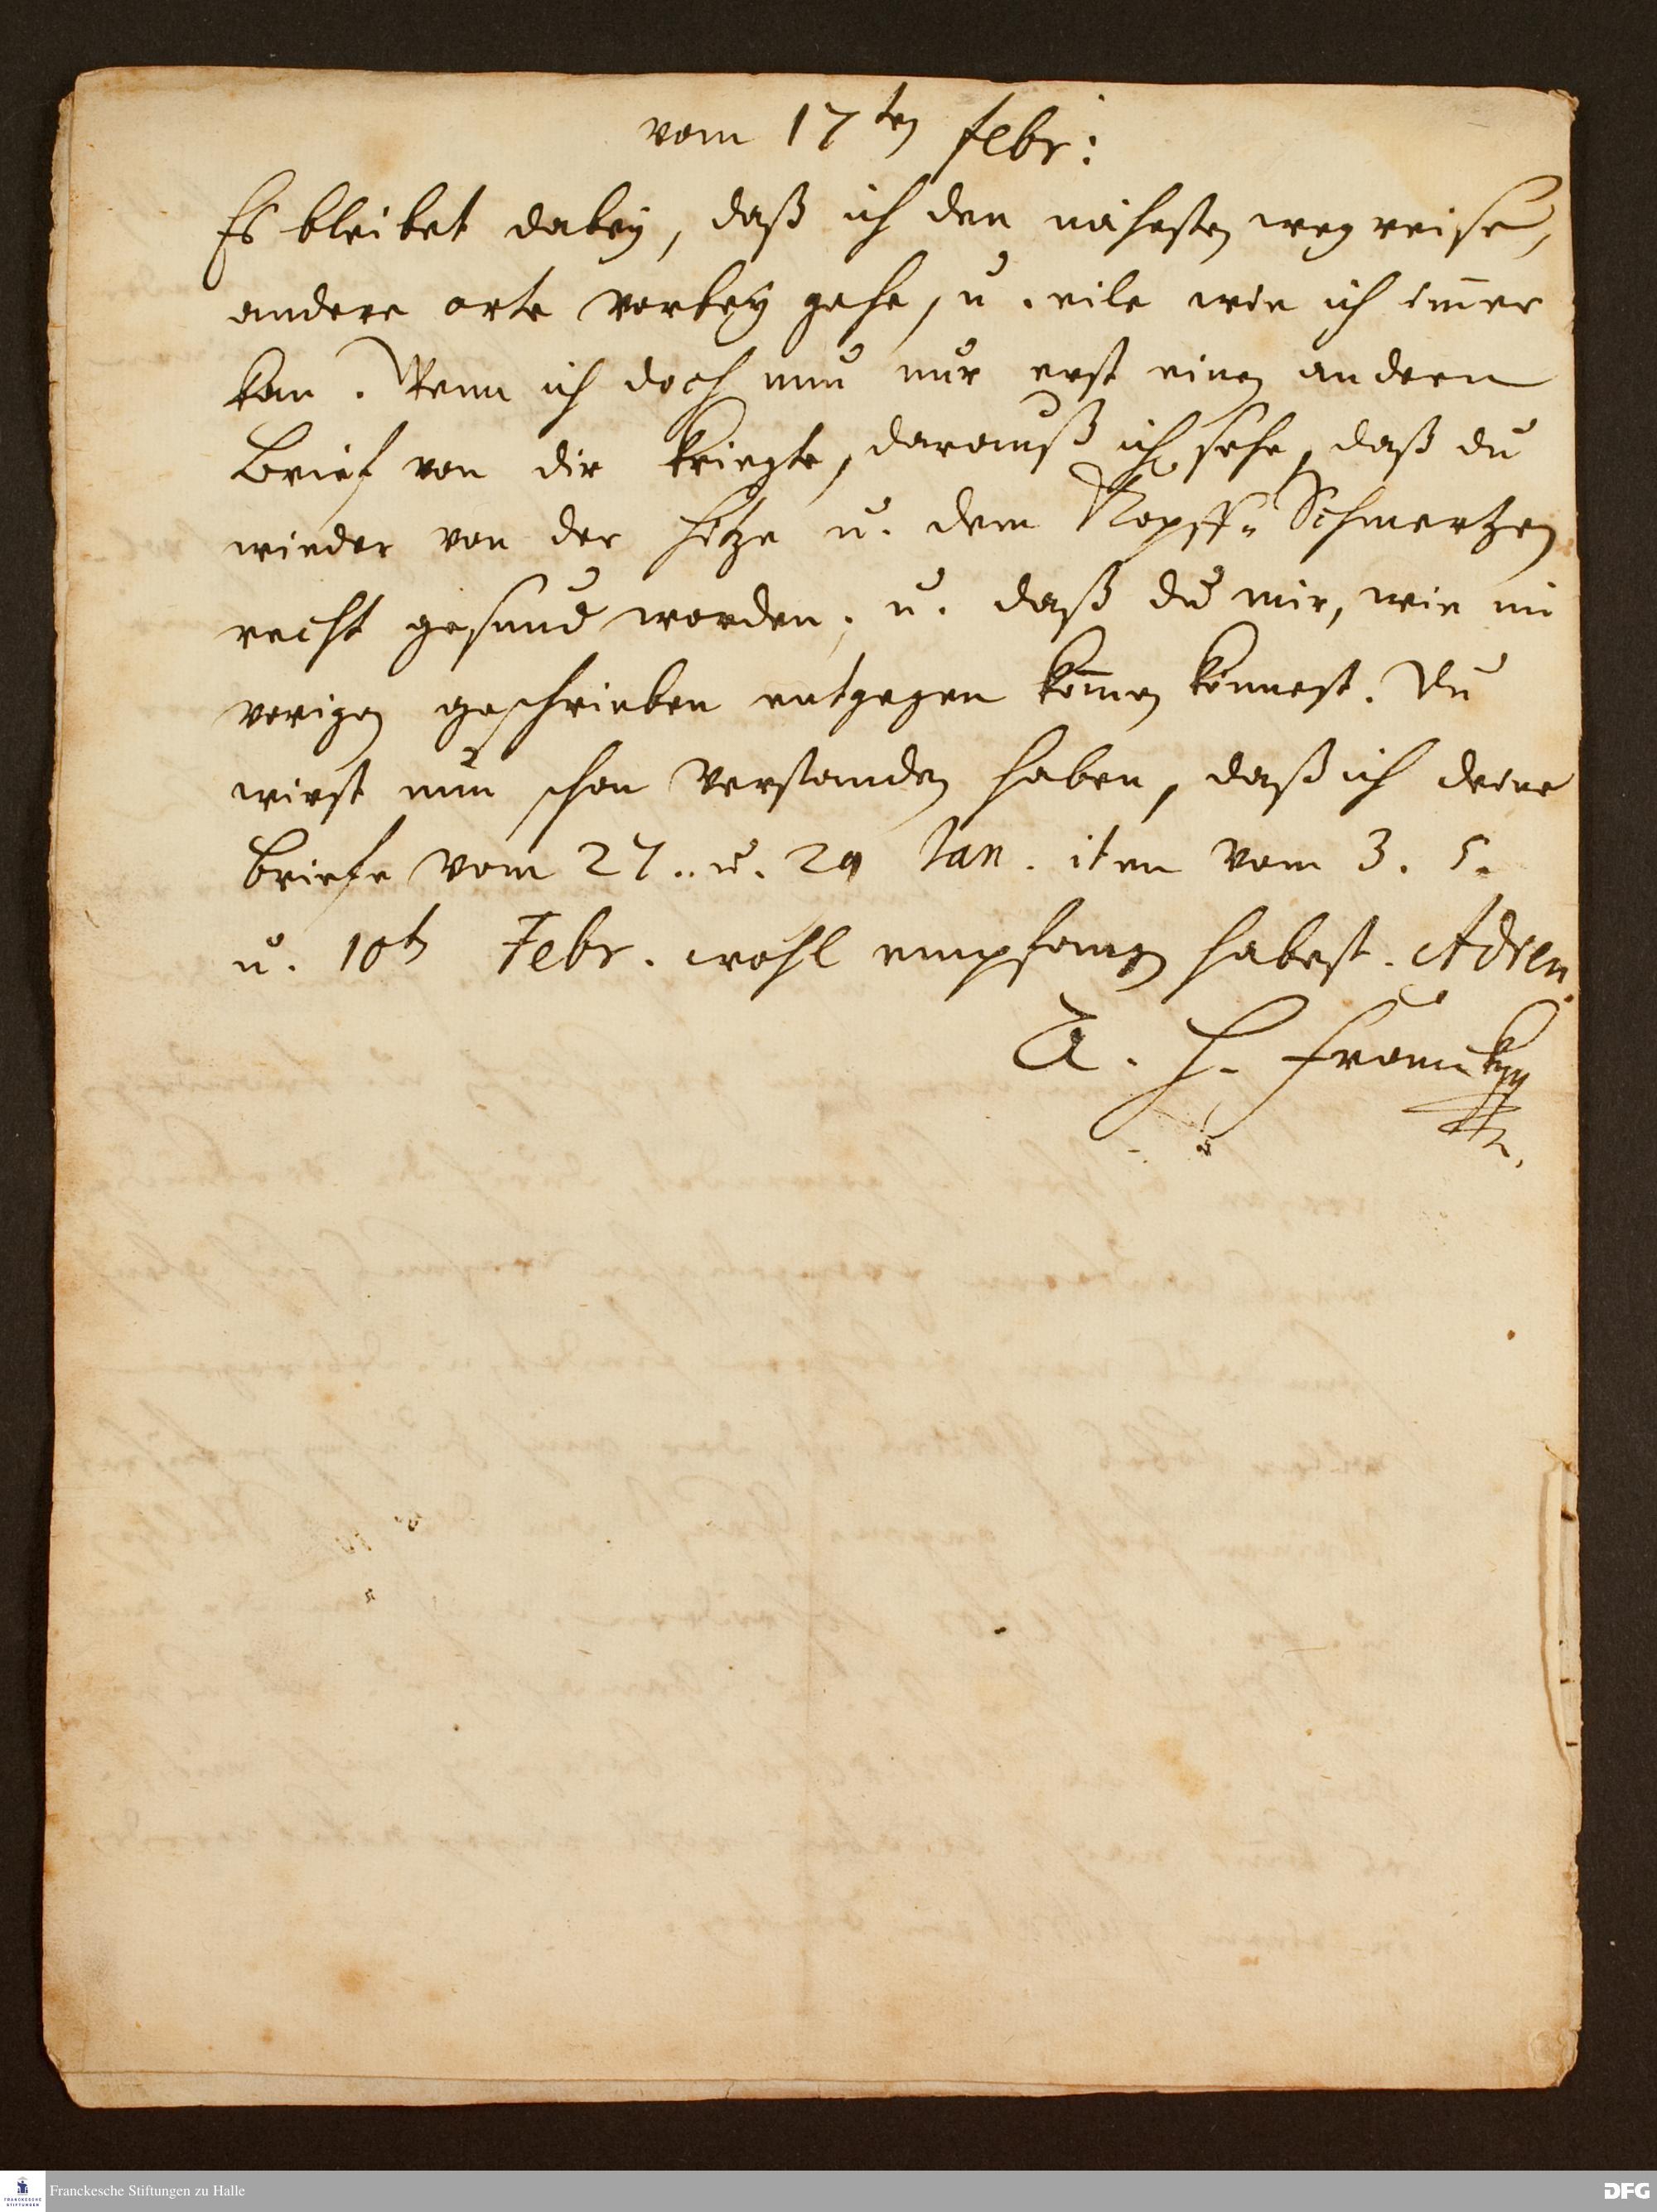 vom 17ten Febr:
Es bleibet dabey, daß ich den nähesten weg reise,
andere orte vorbey gehe, u. eile wie ich im̄er
kan. Wenn ich doch nun nur erst einen andern
Brief von dir kriegte, darauß ich sehe, daß du
wieder von der Hitze u. dem Kopff-Schmertzen
recht gesund worden, u. daß du mir, wie im
vorigen geschrieben entgegen kom̄en könnest. Du
wirst nun schon verstanden haben, daß ich deine
Briefe vom 27. u. 29 Jan. item vom 3. 5.
u. 10t Febr. wohl empfangen habest. Adieu.
A. H. Francke
Franckesche Stiftungen zu Halle
FRANCKESCHE
STIFTUNGEN
DFG